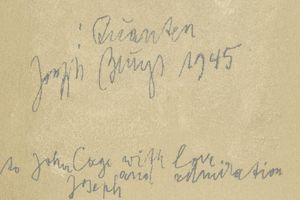 : Quanten
Joseph Beuys 1945
to John Cage with love
and admiration
Joseph